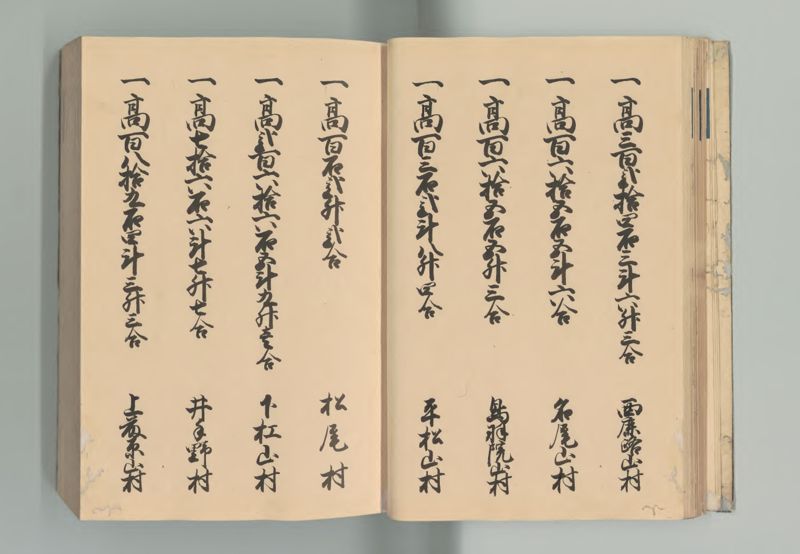 一高三百弐拾四石三斗六升三合 西廉路山村
一高百六拾五石五斗六合 名尾山村
一高百六拾五石五升三合 鳥羽院山村
一高百三石弐斗八升四合 平松山村
一高百石弐升弐合 松尾村
一高弐百六拾六石五斗九升壱合 下杠山村
一高七拾六石六斗七升七合 井手野村
一高百八拾九石四斗三升三合 上 山村